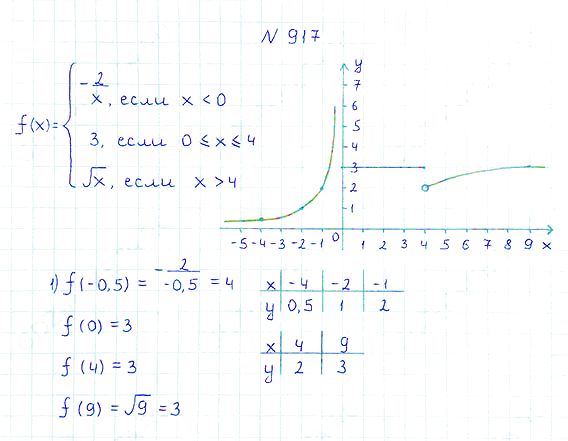 N 917
f(x) = { -2/x, если x < 0
3, если 0 ≤ x ≤ 4
√x, если x > 4
y
7
6
5
4
3
2
1
-5 -4 -3 -2 -1 0 1 2 3 4 5 6 7 8 9 x
1) f(-0,5) = -2/-0,5 = 4
f(0) = 3
f(4) = 3
f(9) = √9 = 3
x -4 -2 -1
y 0,5 1 2
x 4 9
y 2 3